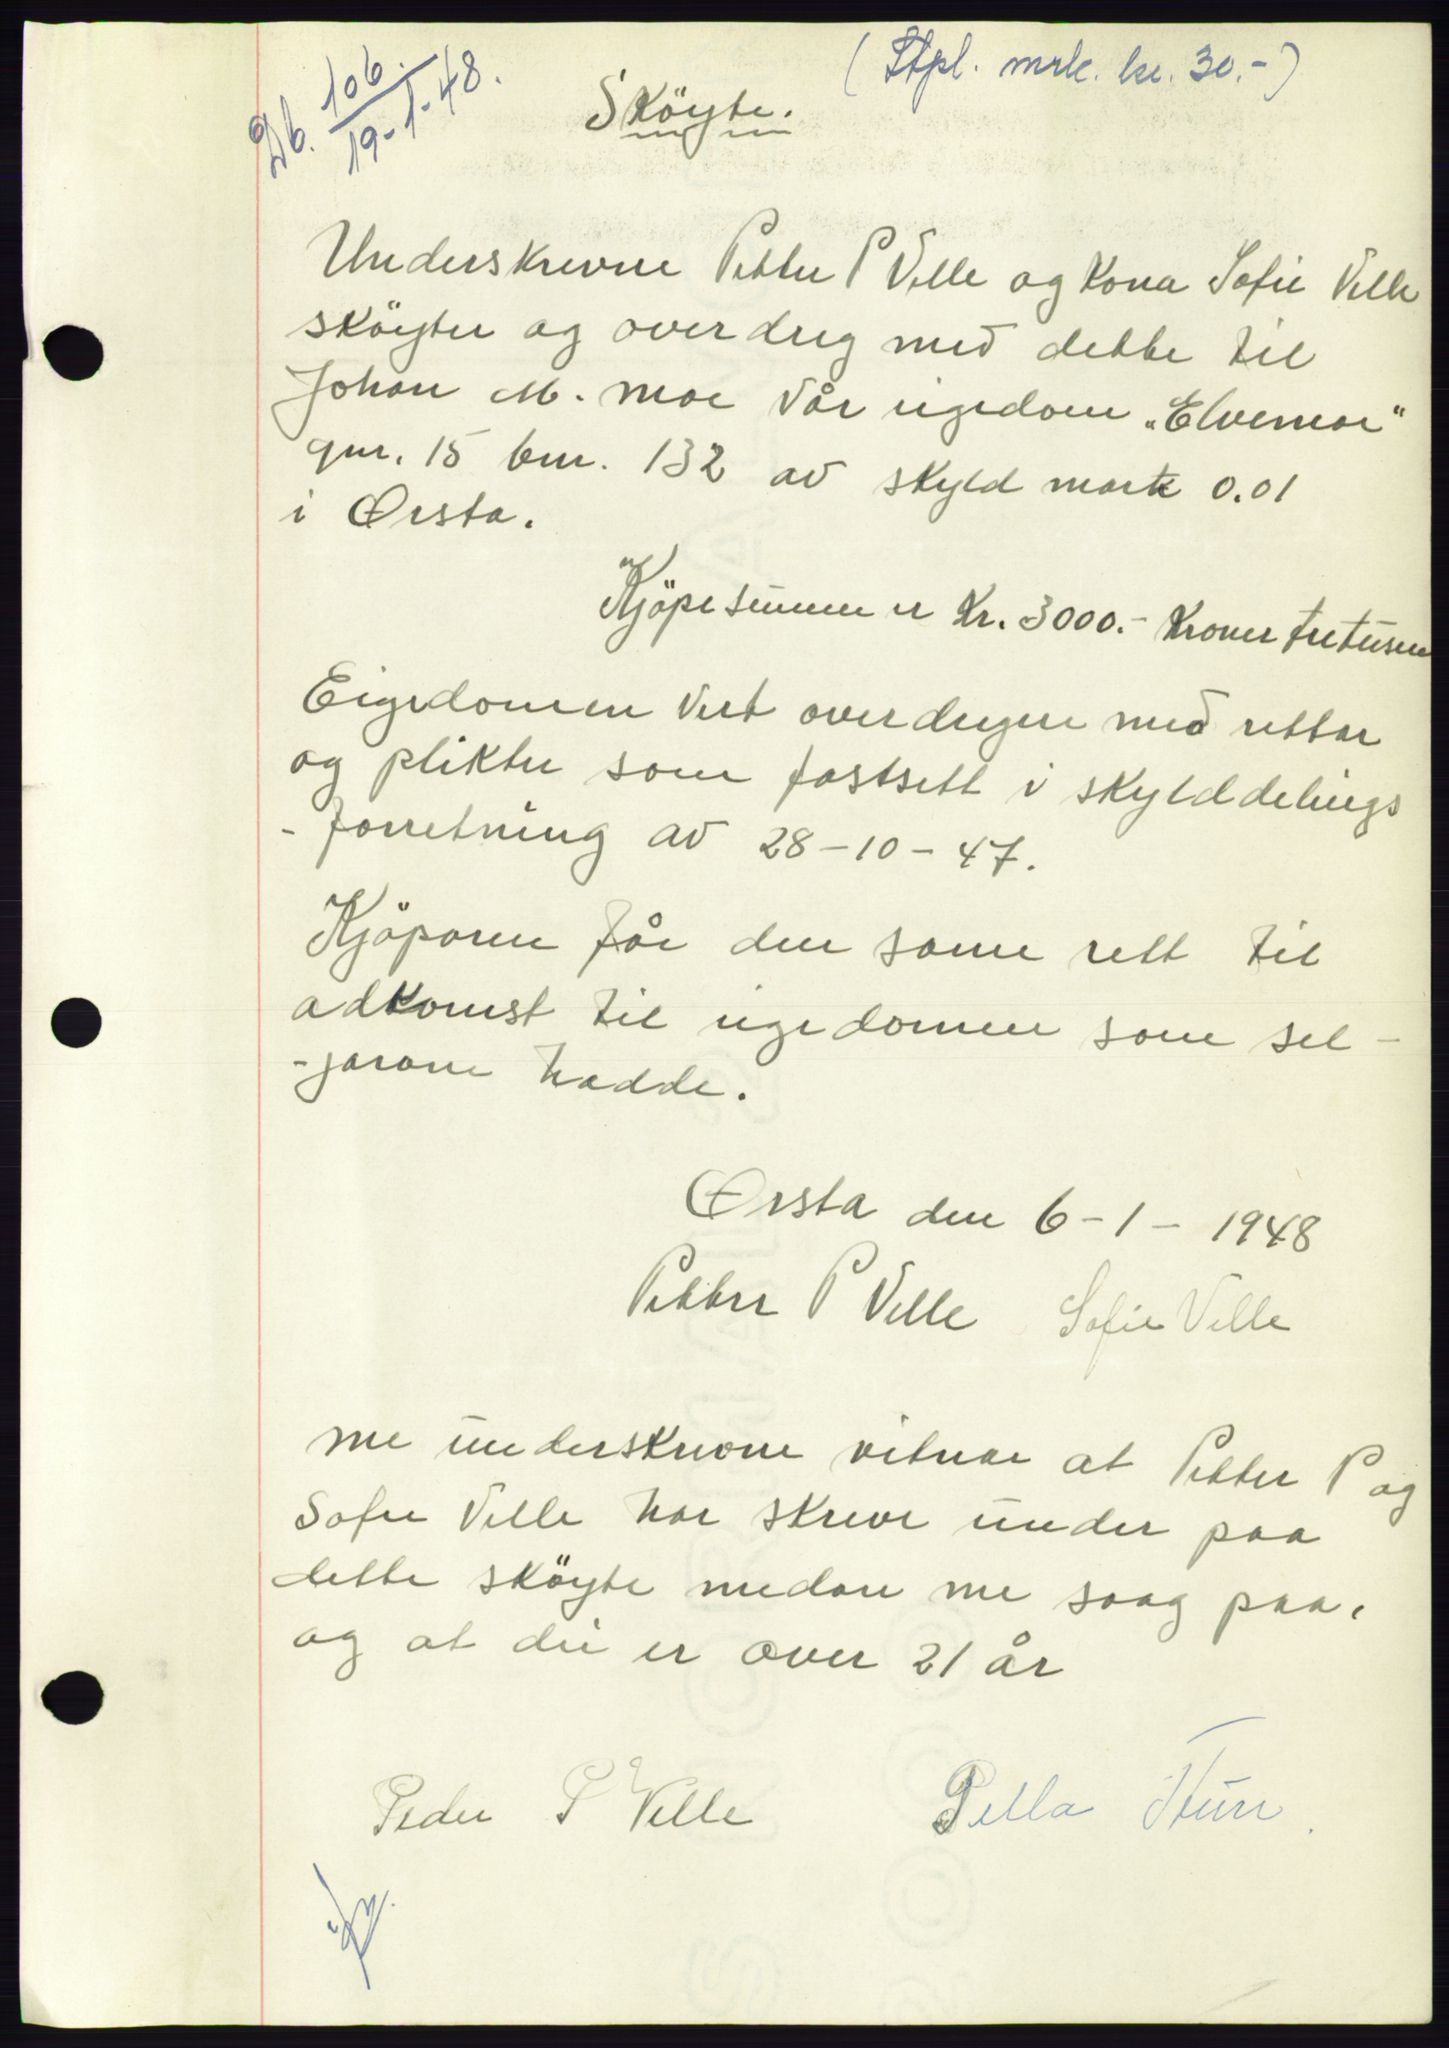 (Stpl. mrk. kr. 30.-)
Db. 106.
19-1-48.
Sköyte.
Underskrevne Petter P Velle og Kona Sofie Velle
sköyter og overdreg med dette til
Johan M. Moe vår eigedom „Elvemoe"
gnr. 15 bnr. 132 av skyld mark 0.01
i Ørsta.
Kjöpesummen er Kr. 3000.- Kroner tretusen
Eigedomen vert overdregen med rettar
og plikter som fastsett i skylddelings
- forretning av 28-10-47.
Kjöparen får den same rett til
adkomst til eigedomen som sel-
-jarane hadde.
Ørsta den 6-1-1948
Petter P Velle Sofie Velle
Me underskrivne vitnar at Petter P og
Sofie Velle har skreve under paa
dette sköyte medan me saag paa,
og at dei er over 21 år
Peder P Velle Pella